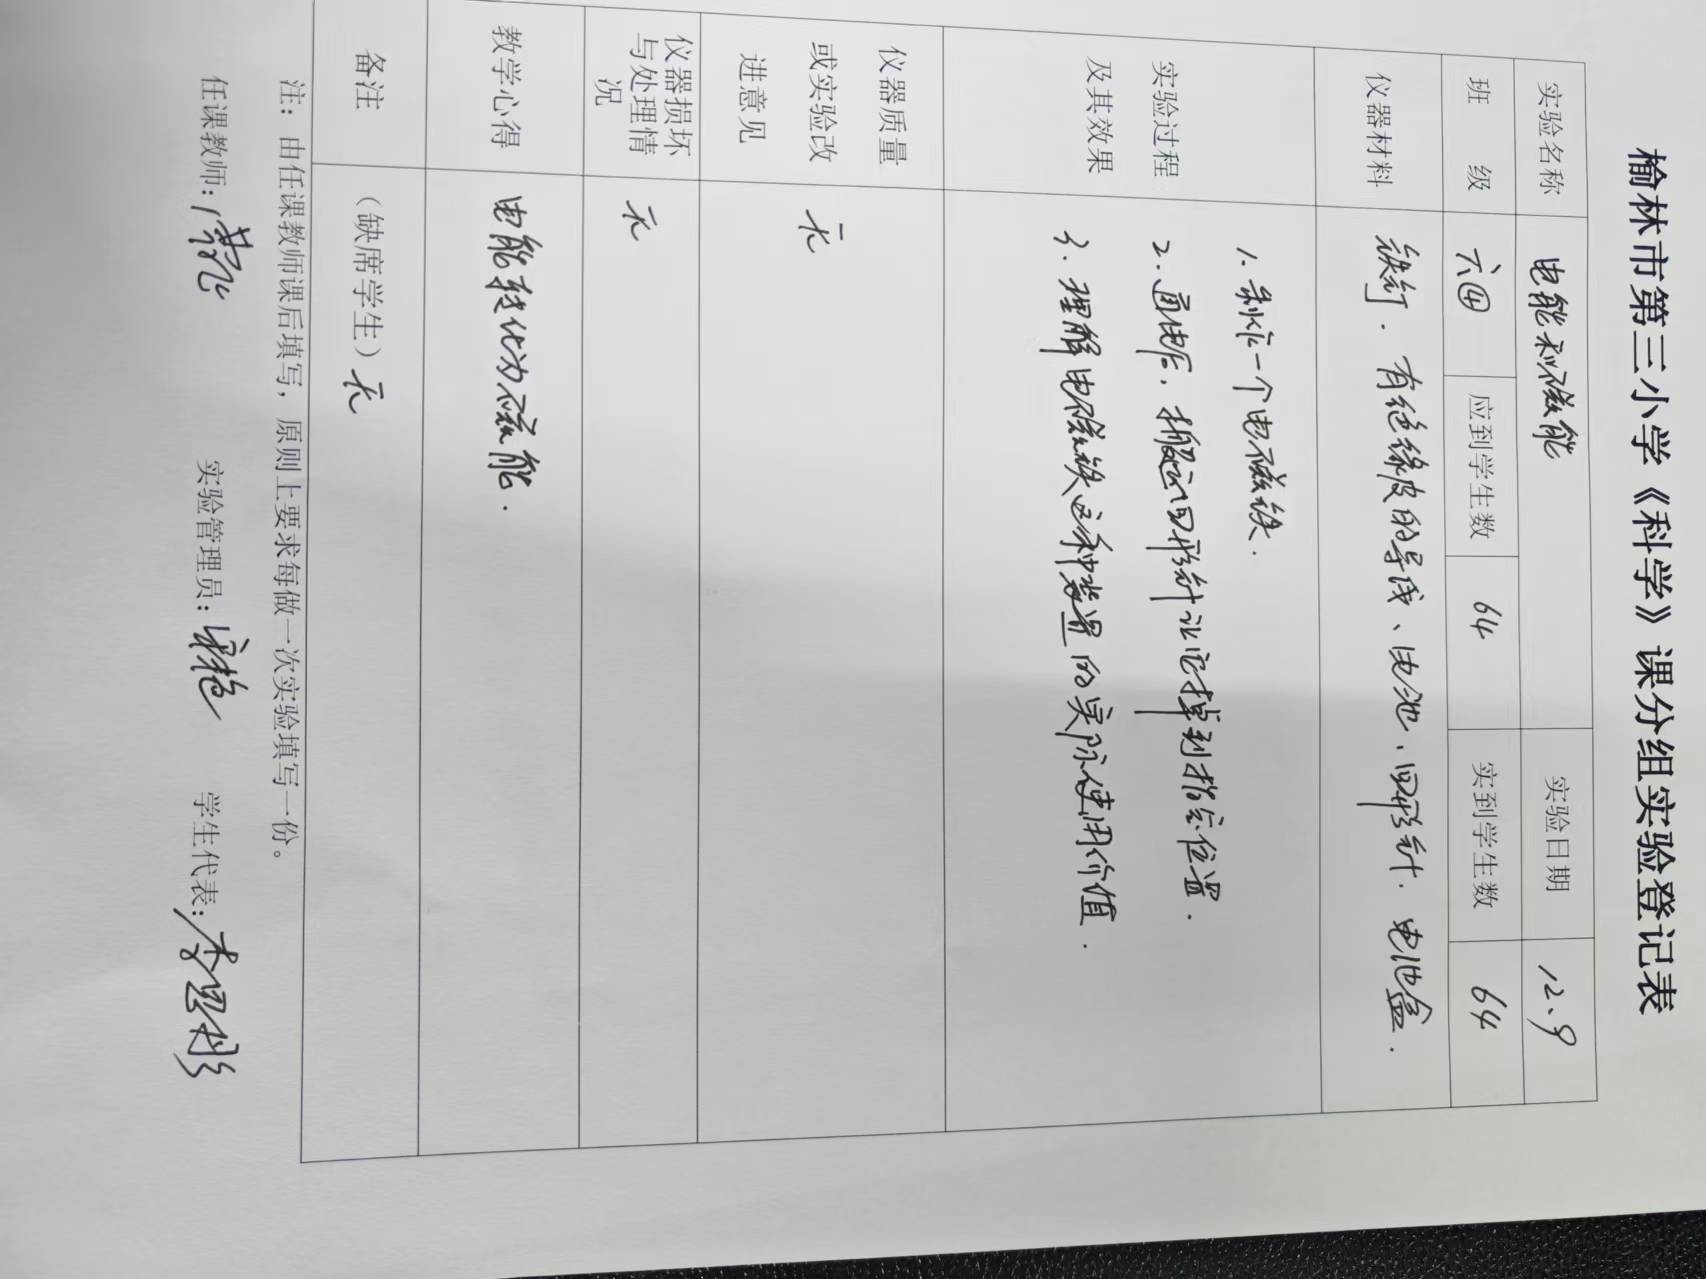 榆林市第三小学《科学》课分组实验登记表
实验名称 电能和磁能 实验日期 12、9
班 级 六④ 应到学生数 64 实到学生数 64
仪器材料 铁钉．有绝缘皮的导线、电池、回形针．电池盒．
实验过程
及其效果
1. 制作一个电磁铁．
2. 通电后，搬运回形针让它掉到指定位置．
3. 理解电磁铁这种装置的实际使用价值．
仪器质量
或实验改
进意见
无
仪器损坏
与处理情
况
无
教学心得 电能转化为磁能．
备注 （缺席学生）无
注：由任课教师课后填写，原则上要求每做一次实验填写一份。
任课教师： 实验管理员： 学生代表：